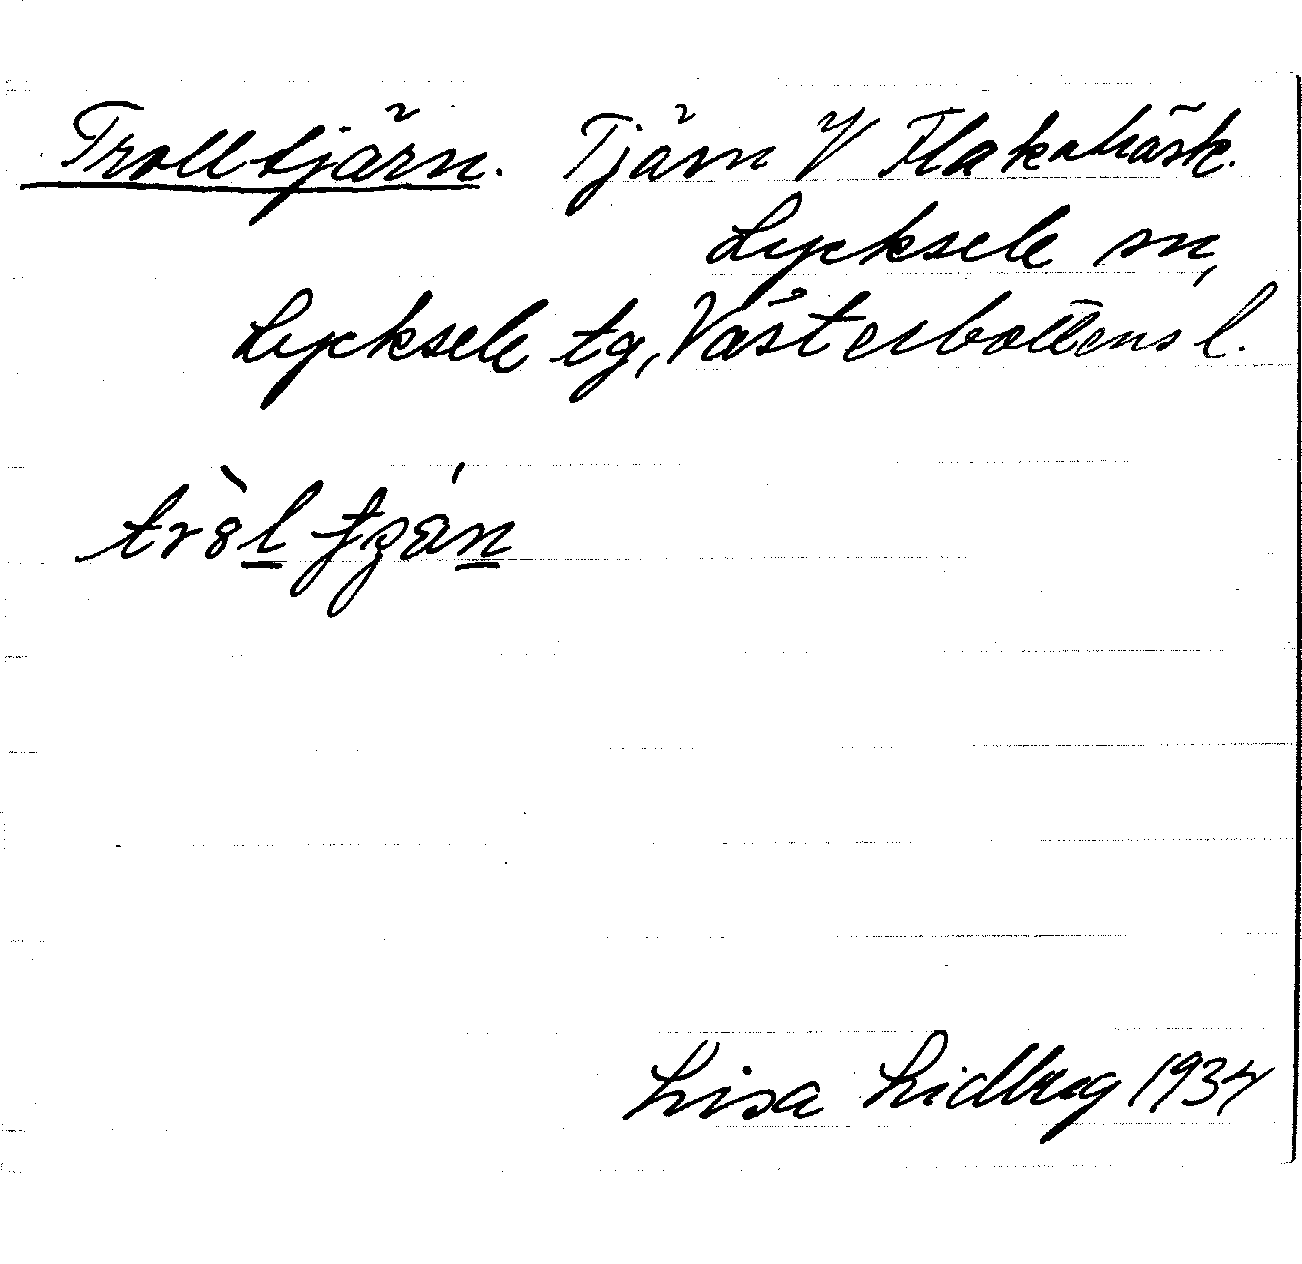 Trolltjärn. Tjärn V Flakaträsk.
Lycksele sn,
Lycksele tg, Västerbottens l.
Lisa Lidberg 1934